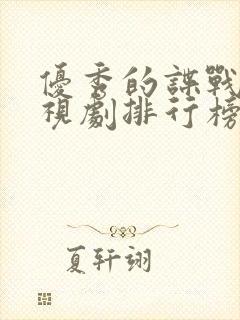 優秀的諜戰
視劇排行榜
夏軒翊